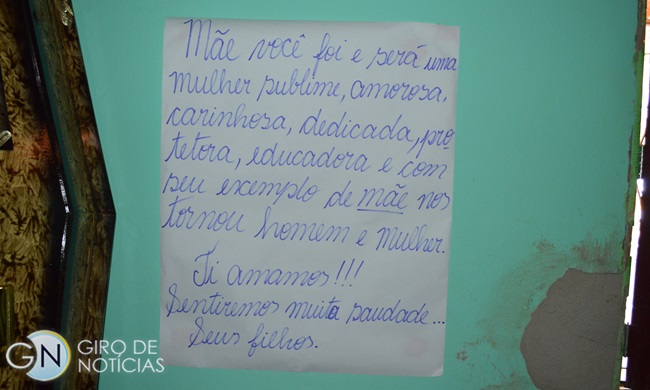 Mãe você foi e será uma
mulher sublime, amorosa,
carinhosa, dedicada, pro
tetora, educadora e com
seu exemplo de mãe nos
tornou homem e mulher.
Ti amamos!!!
Sentiremos muita saudade...
Seus filhos.
GN GIRO DE
NOTÍCIAS